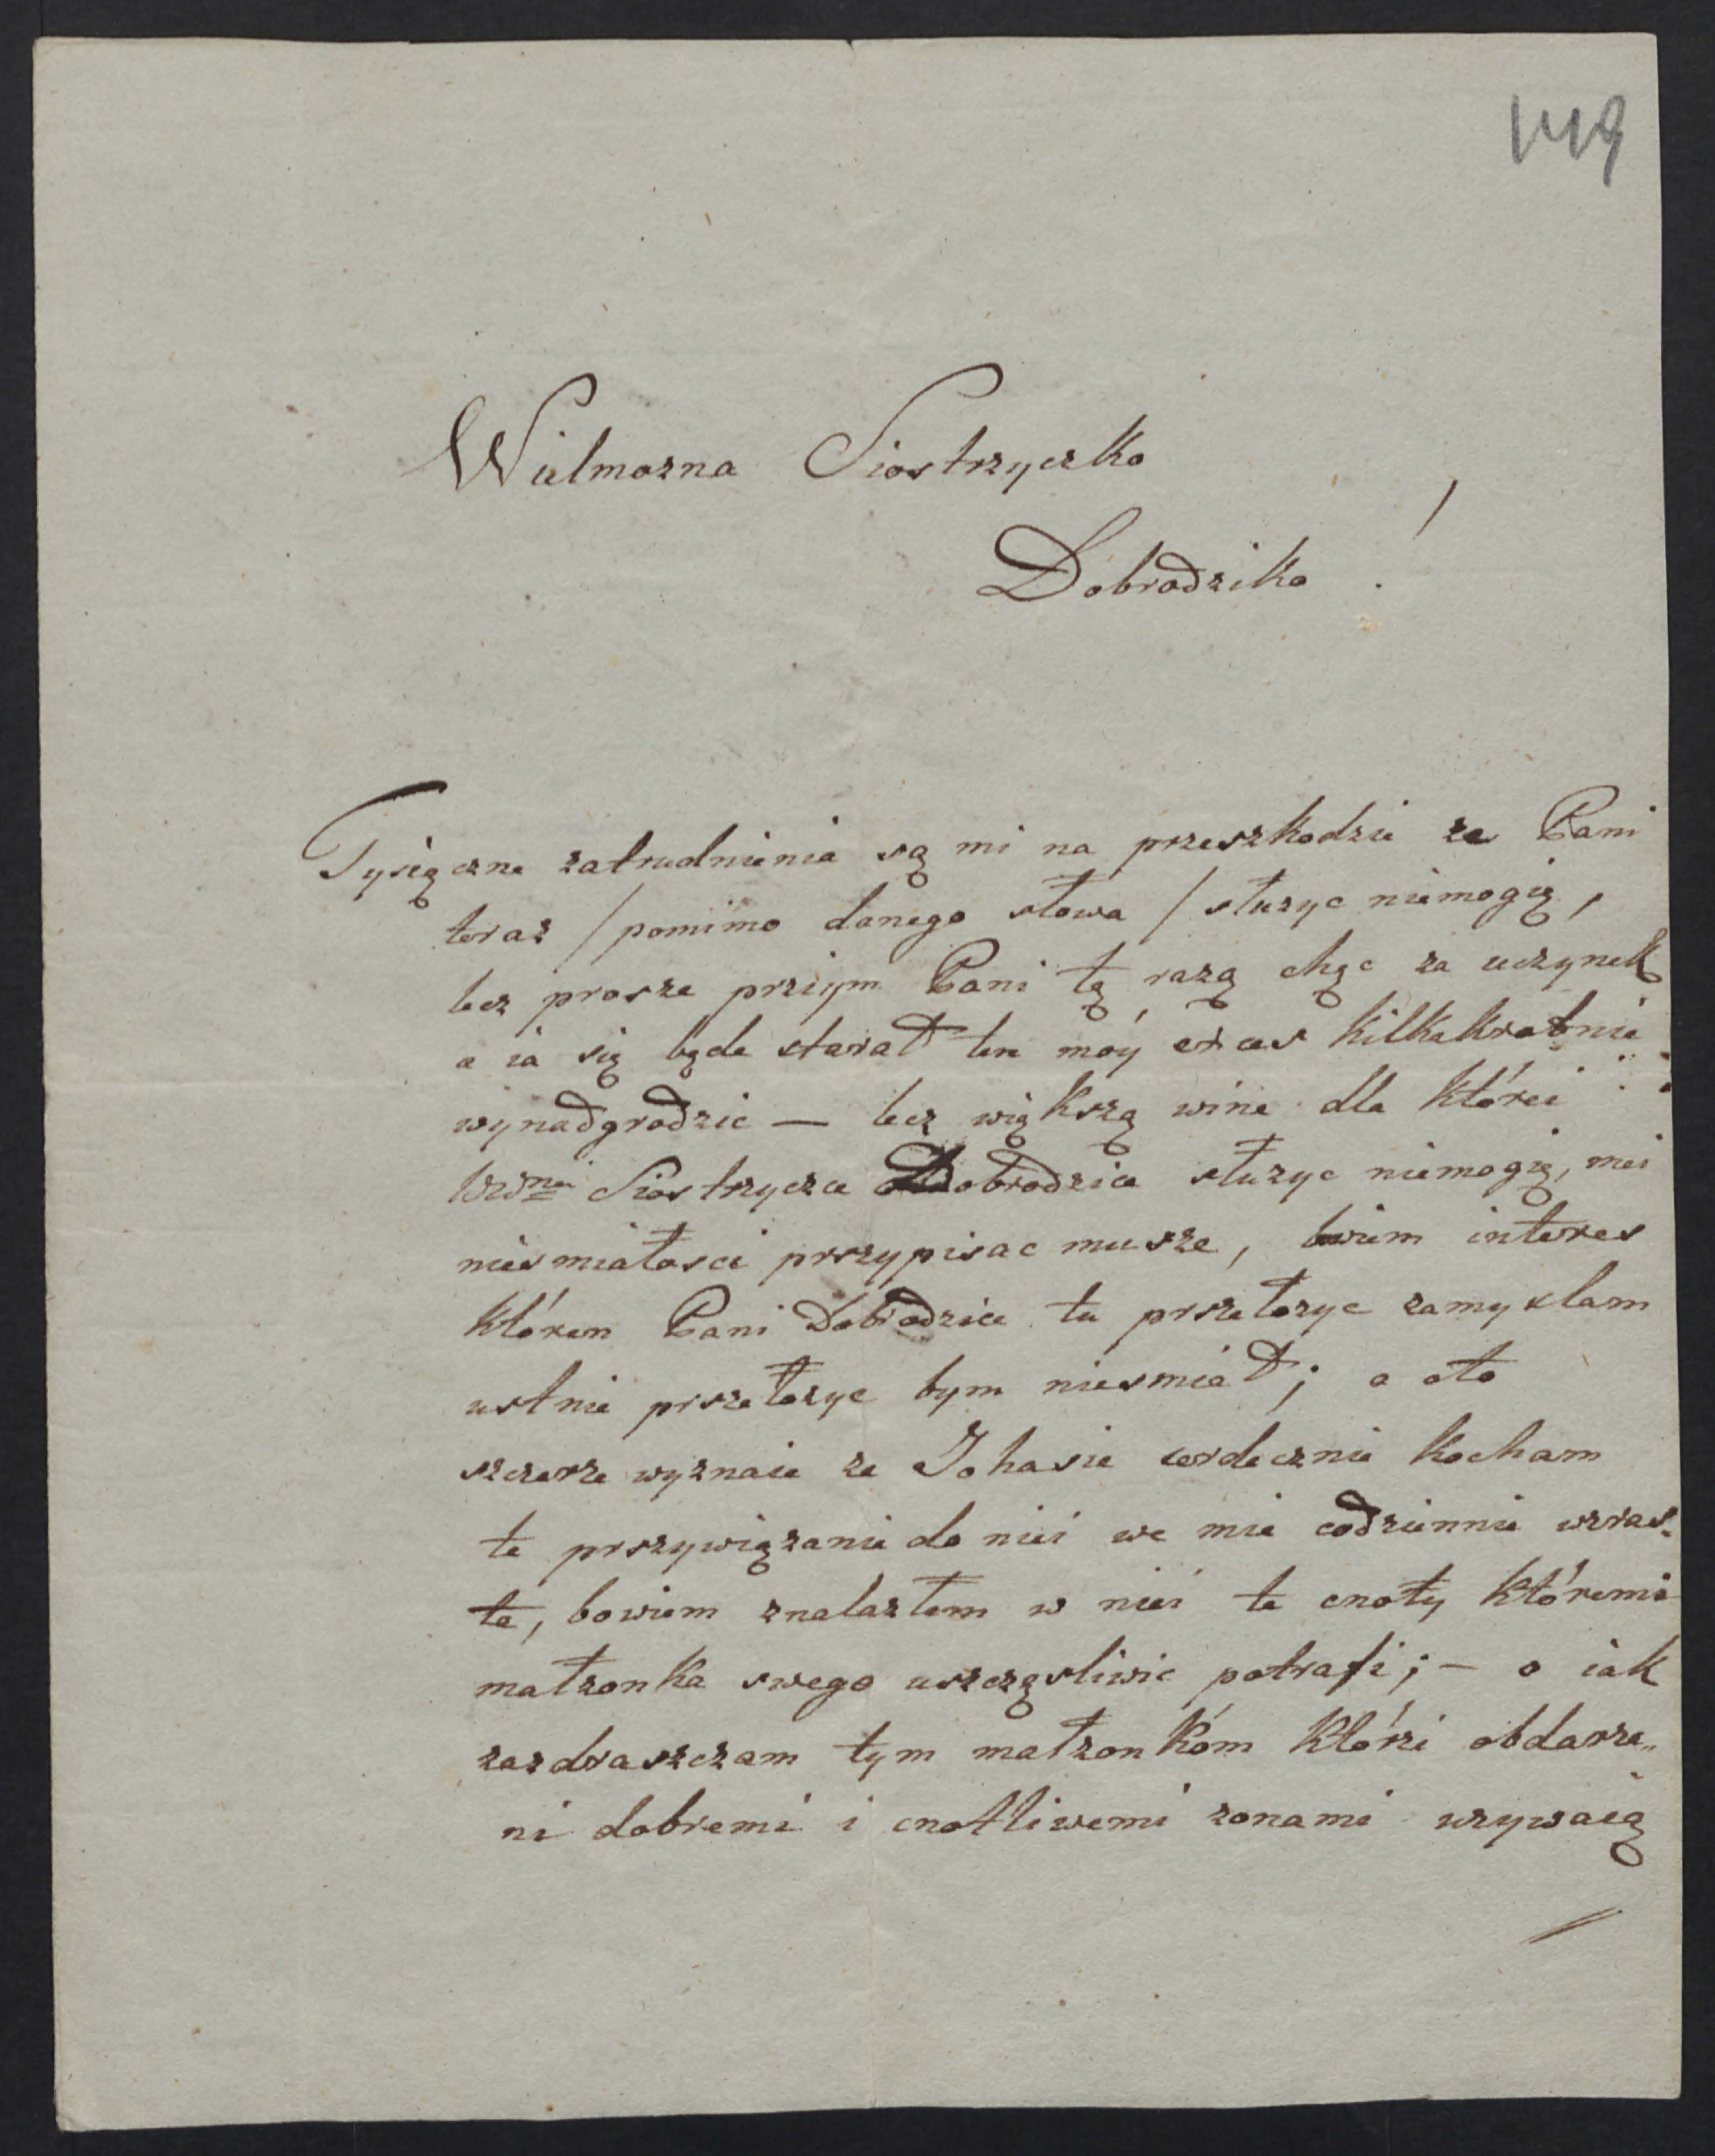 149
Wielmozna Siostrzyczko
Dobrodziko !
Tysięczne zatrudnienia są mi na przeszkodzie ze Pani
teraz / pomimo danego słowa / słuzyc niemogię,
lecz prosze przijym Pani tą razą chęc za uczynek
a ia się będe starał ten móy czas kilkakrotnie
wynadgrodzic — lecz większą wine dla którei
Wiel. Siostrzyczce Dobrodzice słuzyc niemogię, mei
niesmiałosci przypisac musze, bowiem interes
którem Pani Dobrodzice tu przełozyc zamyslam
ustnie przełozyc bym niesmiał; a oto
szczerze wyznaie ze Johasie serdecznie kocham
te przywiązanie do niei we mie codziennie wzras„
ta, bowiem znalazłem w niei te cnoty któremi
małzonka swego uszczęsliwic potrafi; — o iak
zazdraszczam tym małzonkóm którzi obdarze„
ni dobremi i cnotliwemi zonami uzywaią